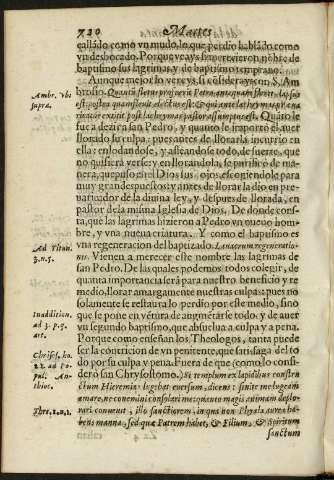 720 Martes
callãdo como vn mudo, lo que perdio hablãdo como
vn desbocado. Porque veays si merecieron nõbre de
baptismo sus lagrimas, y de baptismo temprano.
Aunque mejor lo vereys, si considerays con S. Am
Ambr. vbi
supra.
brosio.
post lachrymas pastor assumptus est. Quãto le
fue a dezir a san Pedro, y quanto le importò el auer
llorado su culpa: pues antes de llorarla, incurrio en
ella: enlodandose, y afeando se todo, de suerte, que
no quisiera verse: y en llorandola, se purifico de ma-
nera, que puso en el Dios sus ojos, escogiendole para
muy grandes puestos: y antes de llorar la dio en pre-
uaricador de la diuina ley, y despues de llorada, en
pastor de la misma Iglesia de Dios. De donde cons-
ta, que las lagrimas hizieron a Pedro vn nueuo hom
bre, y vna nueua criatura. Y como el baptismo es
vna regeneracion del baptizado. Lauacrum regeneratio-
Ad Titun.
3. n. 5.
nis. Vienen a merecer este nombre las lagrimas de
san Pedro. De las quales podemos todos colegir, de
quanta importancia serà para nuestro beneficio y re
medio, llorar amargamente nuestras culpas: pues no
solamente se restaura lo perdio por este medio, sino
que se pone en vẽtura de augmẽtarse todo: y de auer
vn segundo baptismo, que absuelua a culpa y a pena.
Porque como enseñan los Theologos, tanta puede
ser la contricion de vn penitente, que satisfaga del to
do por su culpa y pena. Fuera de que (como lo consi-
derò san Chrysostomo.) Si templum ex lapidibus constru
Chrysos. ho.
22. ad Po-
pul. An-
thioc.
ctum Hieremia lugebat euersum, dicens: sinite me lugeam
amare, ne conemini consolari me: quanto magis animam deplo-
rari conuenit, illo sanctiorem, in qua non Phyala aurea ha-
bens manna, sed quæ Patrem habet, & Filium, & Spiritum
sanctum